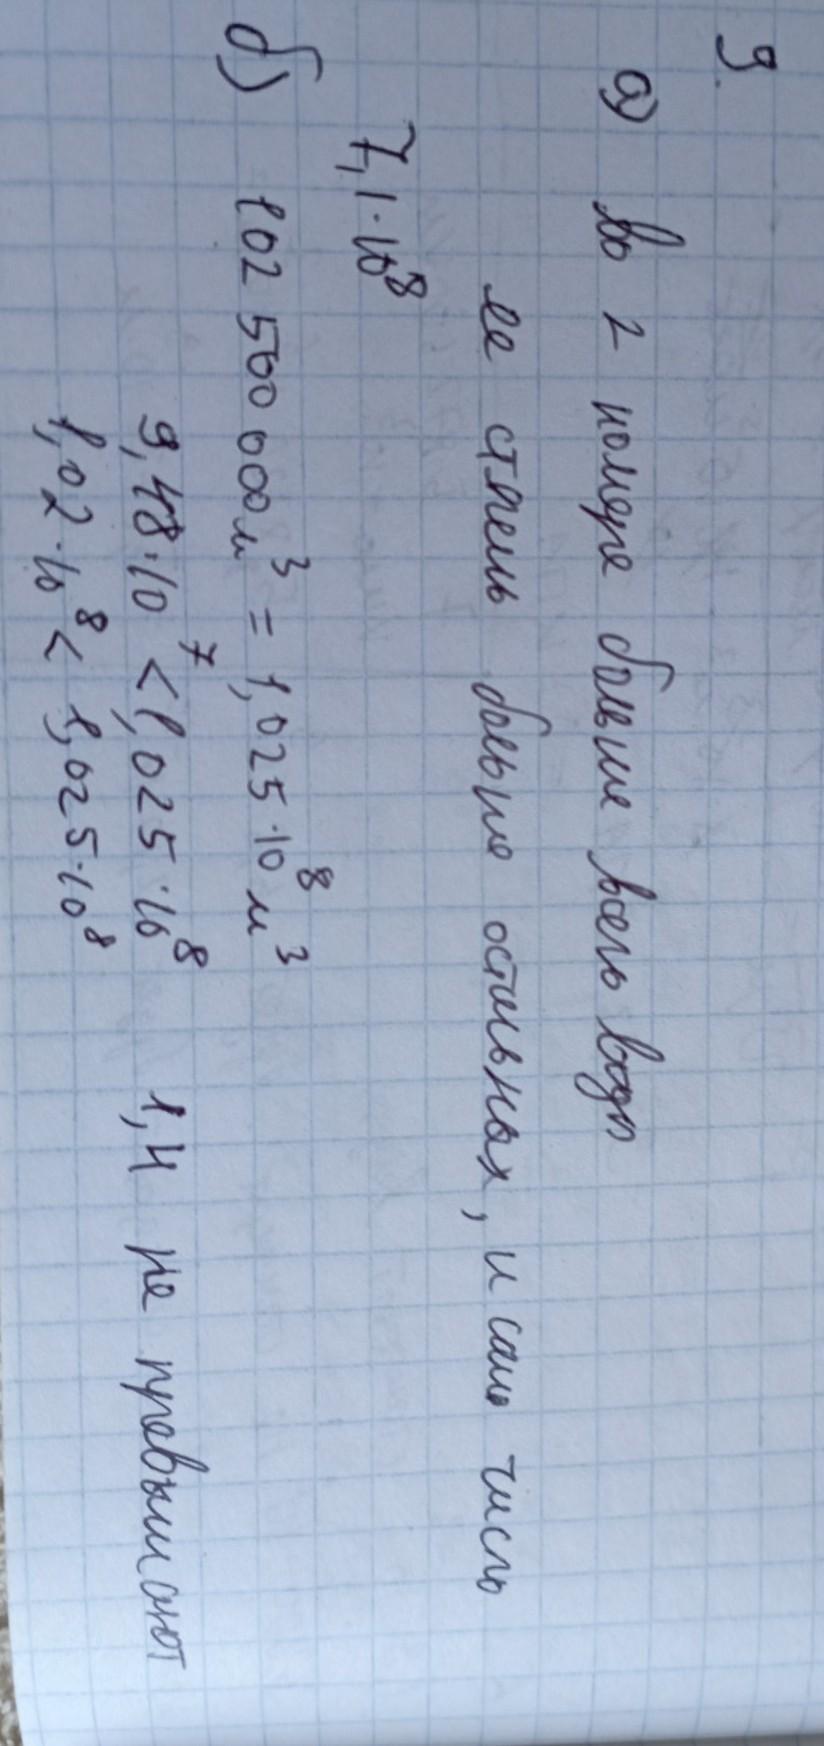 9.
а) во 2 номере больше всего воды
ее степень больше остальных, и само число
7,1·10⁸
б) 102 500 000 м³ = 1,025·10⁸ м³
9,48·10⁷ < 1,025·10⁸ 1,4 не превышают
1,02·10⁸ < 1,025·10⁸